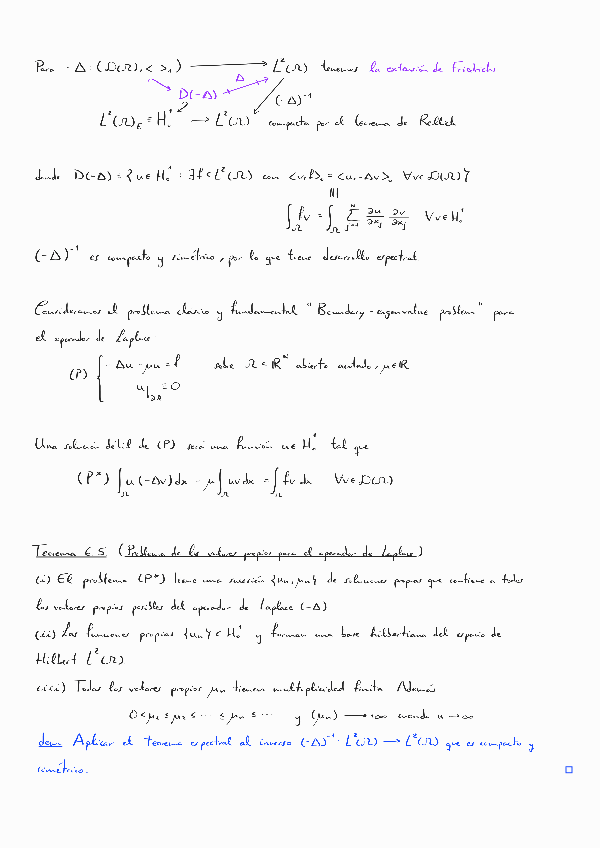 Para -Δ : (D(Ω), < >₁) ⟶ L²(Ω) tenemos la extensión de Friedrichs
D(-Δ) Δ
(-Δ)⁻¹
L²(Ω)_E = H₀¹ → L²(Ω) compacta por el teorema de Rellich
donde D(-Δ) = {u ∈ H₀¹ : ∃f ∈ L²(Ω) con <v,f>₂ = <u,-Δv>₂ ∀v ∈ D(Ω)}
∫_Ω fv = ∫_Ω Σ_{j=1}^N ∂u/∂x_j ∂v/∂x_j ∀v ∈ H₀¹
(-Δ)⁻¹ es compacto y simétrico, por lo que tiene desarrollo espectral
Consideramos el problema clásico y fundamental "Boundary-eigenvalue problem" para
el operador de Laplace:
(P) { -Δu - μu = f sobre Ω ⊂ ℝᴺ abierto acotado, μ ∈ ℝ
u|_∂Ω = 0
Una solución débil de (P) será una función u ∈ H₀¹ tal que
(P*) ∫_Ω u(-Δv)dx - μ∫_Ω uv dx = ∫_Ω fv dx ∀v ∈ D(Ω)
Teorema 6.5 (Problema de los valores propios para el operador de Laplace)
(i) El problema (P*) tiene una sucesión {u_n, μ_n} de soluciones propias que contiene a todos
los valores propios posibles del operador de Laplace (-Δ)
(ii) Las funciones propias {u_n} ⊂ H₀¹ y forman una base hilbertiana del espacio de
Hilbert L²(Ω)
(iii) Todos los valores propios μ_n tienen multiplicidad finita. Además
0 < μ₁ ≤ μ₂ ≤ ··· ≤ μ_n ≤ ··· y (μ_n) ⟶ +∞ cuando n → ∞
dem: Aplicar el teorema espectral al inverso (-Δ)⁻¹ : L²(Ω) ⟶ L²(Ω) que es compacto y
simétrico. □